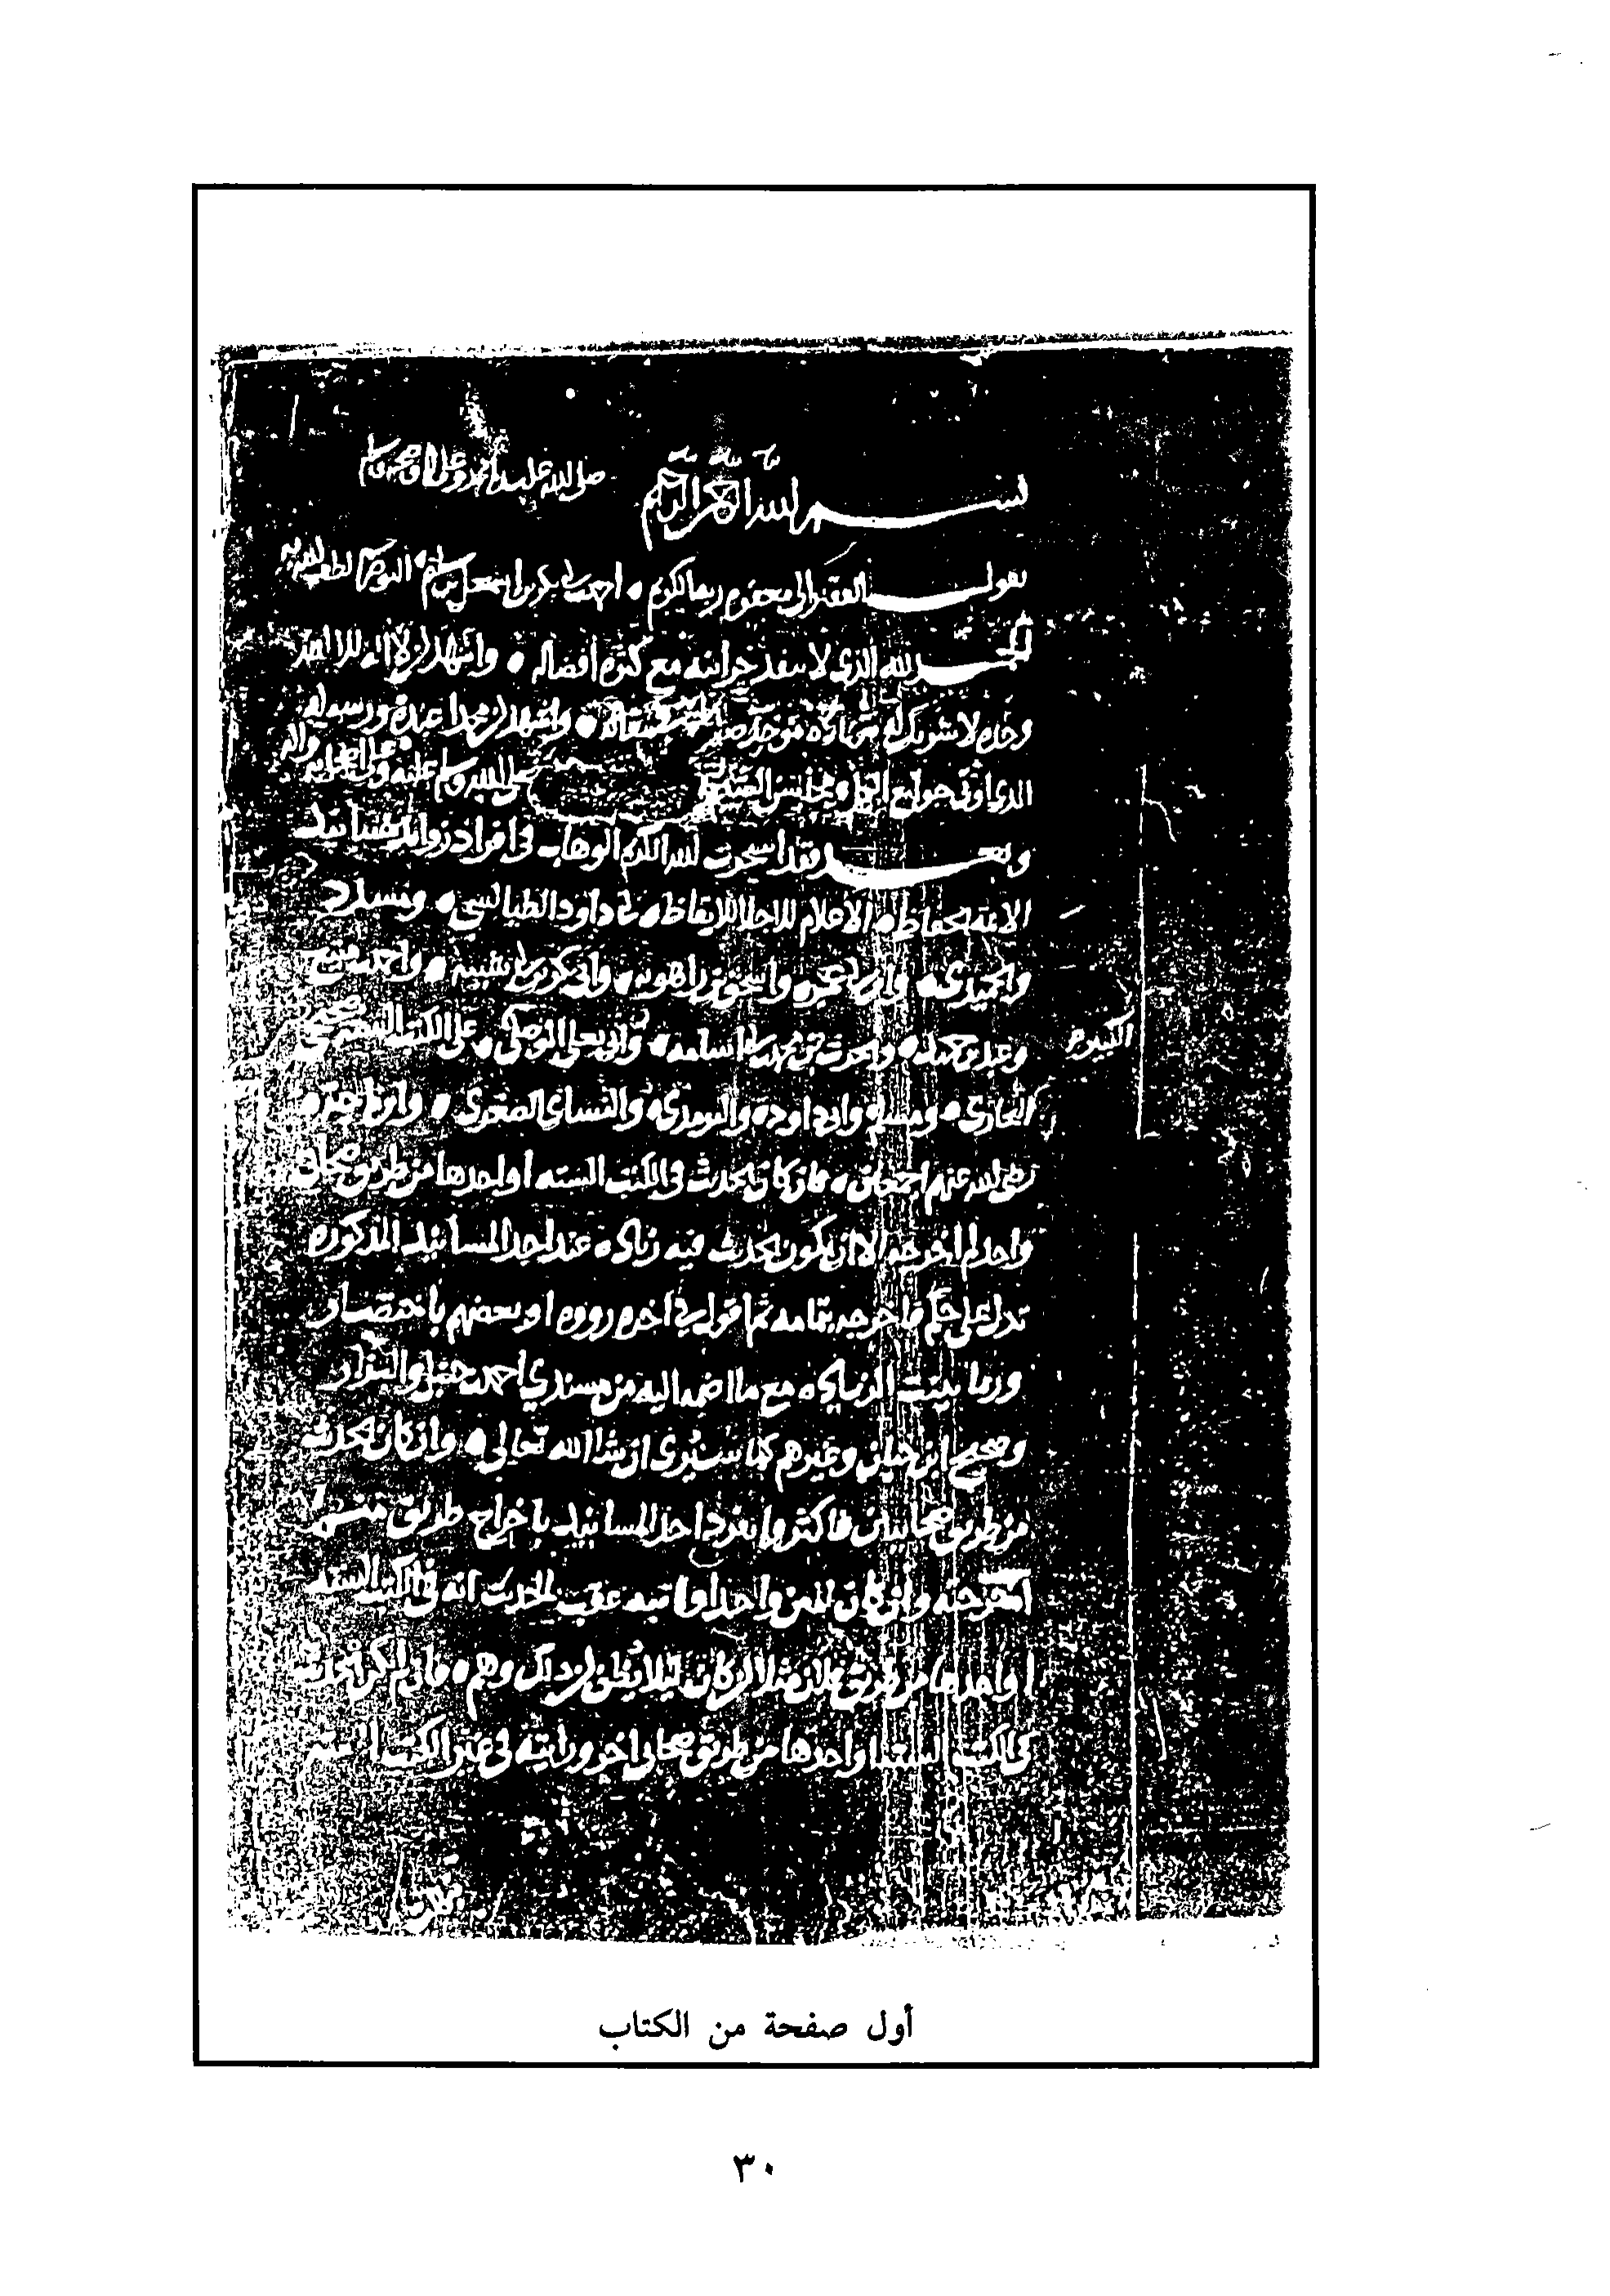 بسم الله الرحمن الرحيم صلى الله على سيدنا محمد وعلى اله وصحبه وسلم
يقول الفقير الى مغفره ربه الكريم احمد بن ابي بكر بن اسمعيل بن سليم البوصيري لطف الله به
الحمد لله الذي لا تنفد خزائنه مع كثره افضاله واشهد ان لا اله الا الله
وحده لا شريك له شهادة واشهد ان محمدا عبده ورسوله
الذي اوتي جوامع صلى الله وسلم عليه وعلى اصحابه واله
وبعد فقد استخرت الله الكريم الوهاب في افراد زوائد مسانيد
الائمه الحفاظ الاعلام الاجلاء الايقاظ ابي داود الطيالسي ومسدد
والحميدي وابن ابي عمر واسحق بن راهويه وابي بكر بن ابي شيبه واحمد بن منيع
وعبد بن حميد والحرث بن محمد بن ابي اسامه وابي يعلى الموصلي الكبير على الكتب السته صحيحي
البخاري ومسلم وابي داود والترمذي والنسائي الصغرى وابن ماجه
رضي الله عنهم اجمعين فان كان الحديث في الكتب السته او احدها من طريق صحابي
واحد لم اخرجه الا ان يكون الحديث فيه زياده عند احد المسانيد المذكوره
تدل على حكم فاخرجه بتمامه ثم اقول في آخره رووه او بعضهم باختصار
وربما بينت الزياده مع ما اضمه اليه من مسندي احمد بن حنبل والبزار
وصحيح ابن حبان وغيرهم كما سترى ان شا الله تعالى وان كان الحديث
من طريق صحابيين فاكثر وانفرد احد المسانيد باخراج طريق منها
اخرجته وان كان المتن واحدا وانبه عقب الحديث انه في الكتب السته
او احدها من طريق فلان مثلا ان كان ليلا يظن ان ذلك وهم فان لم يكن الحديث
في الكتب السته او احدها من طريق صحابي اخر ورايته في غير الكتب السته
أول صفحة من الكتاب
٣٠